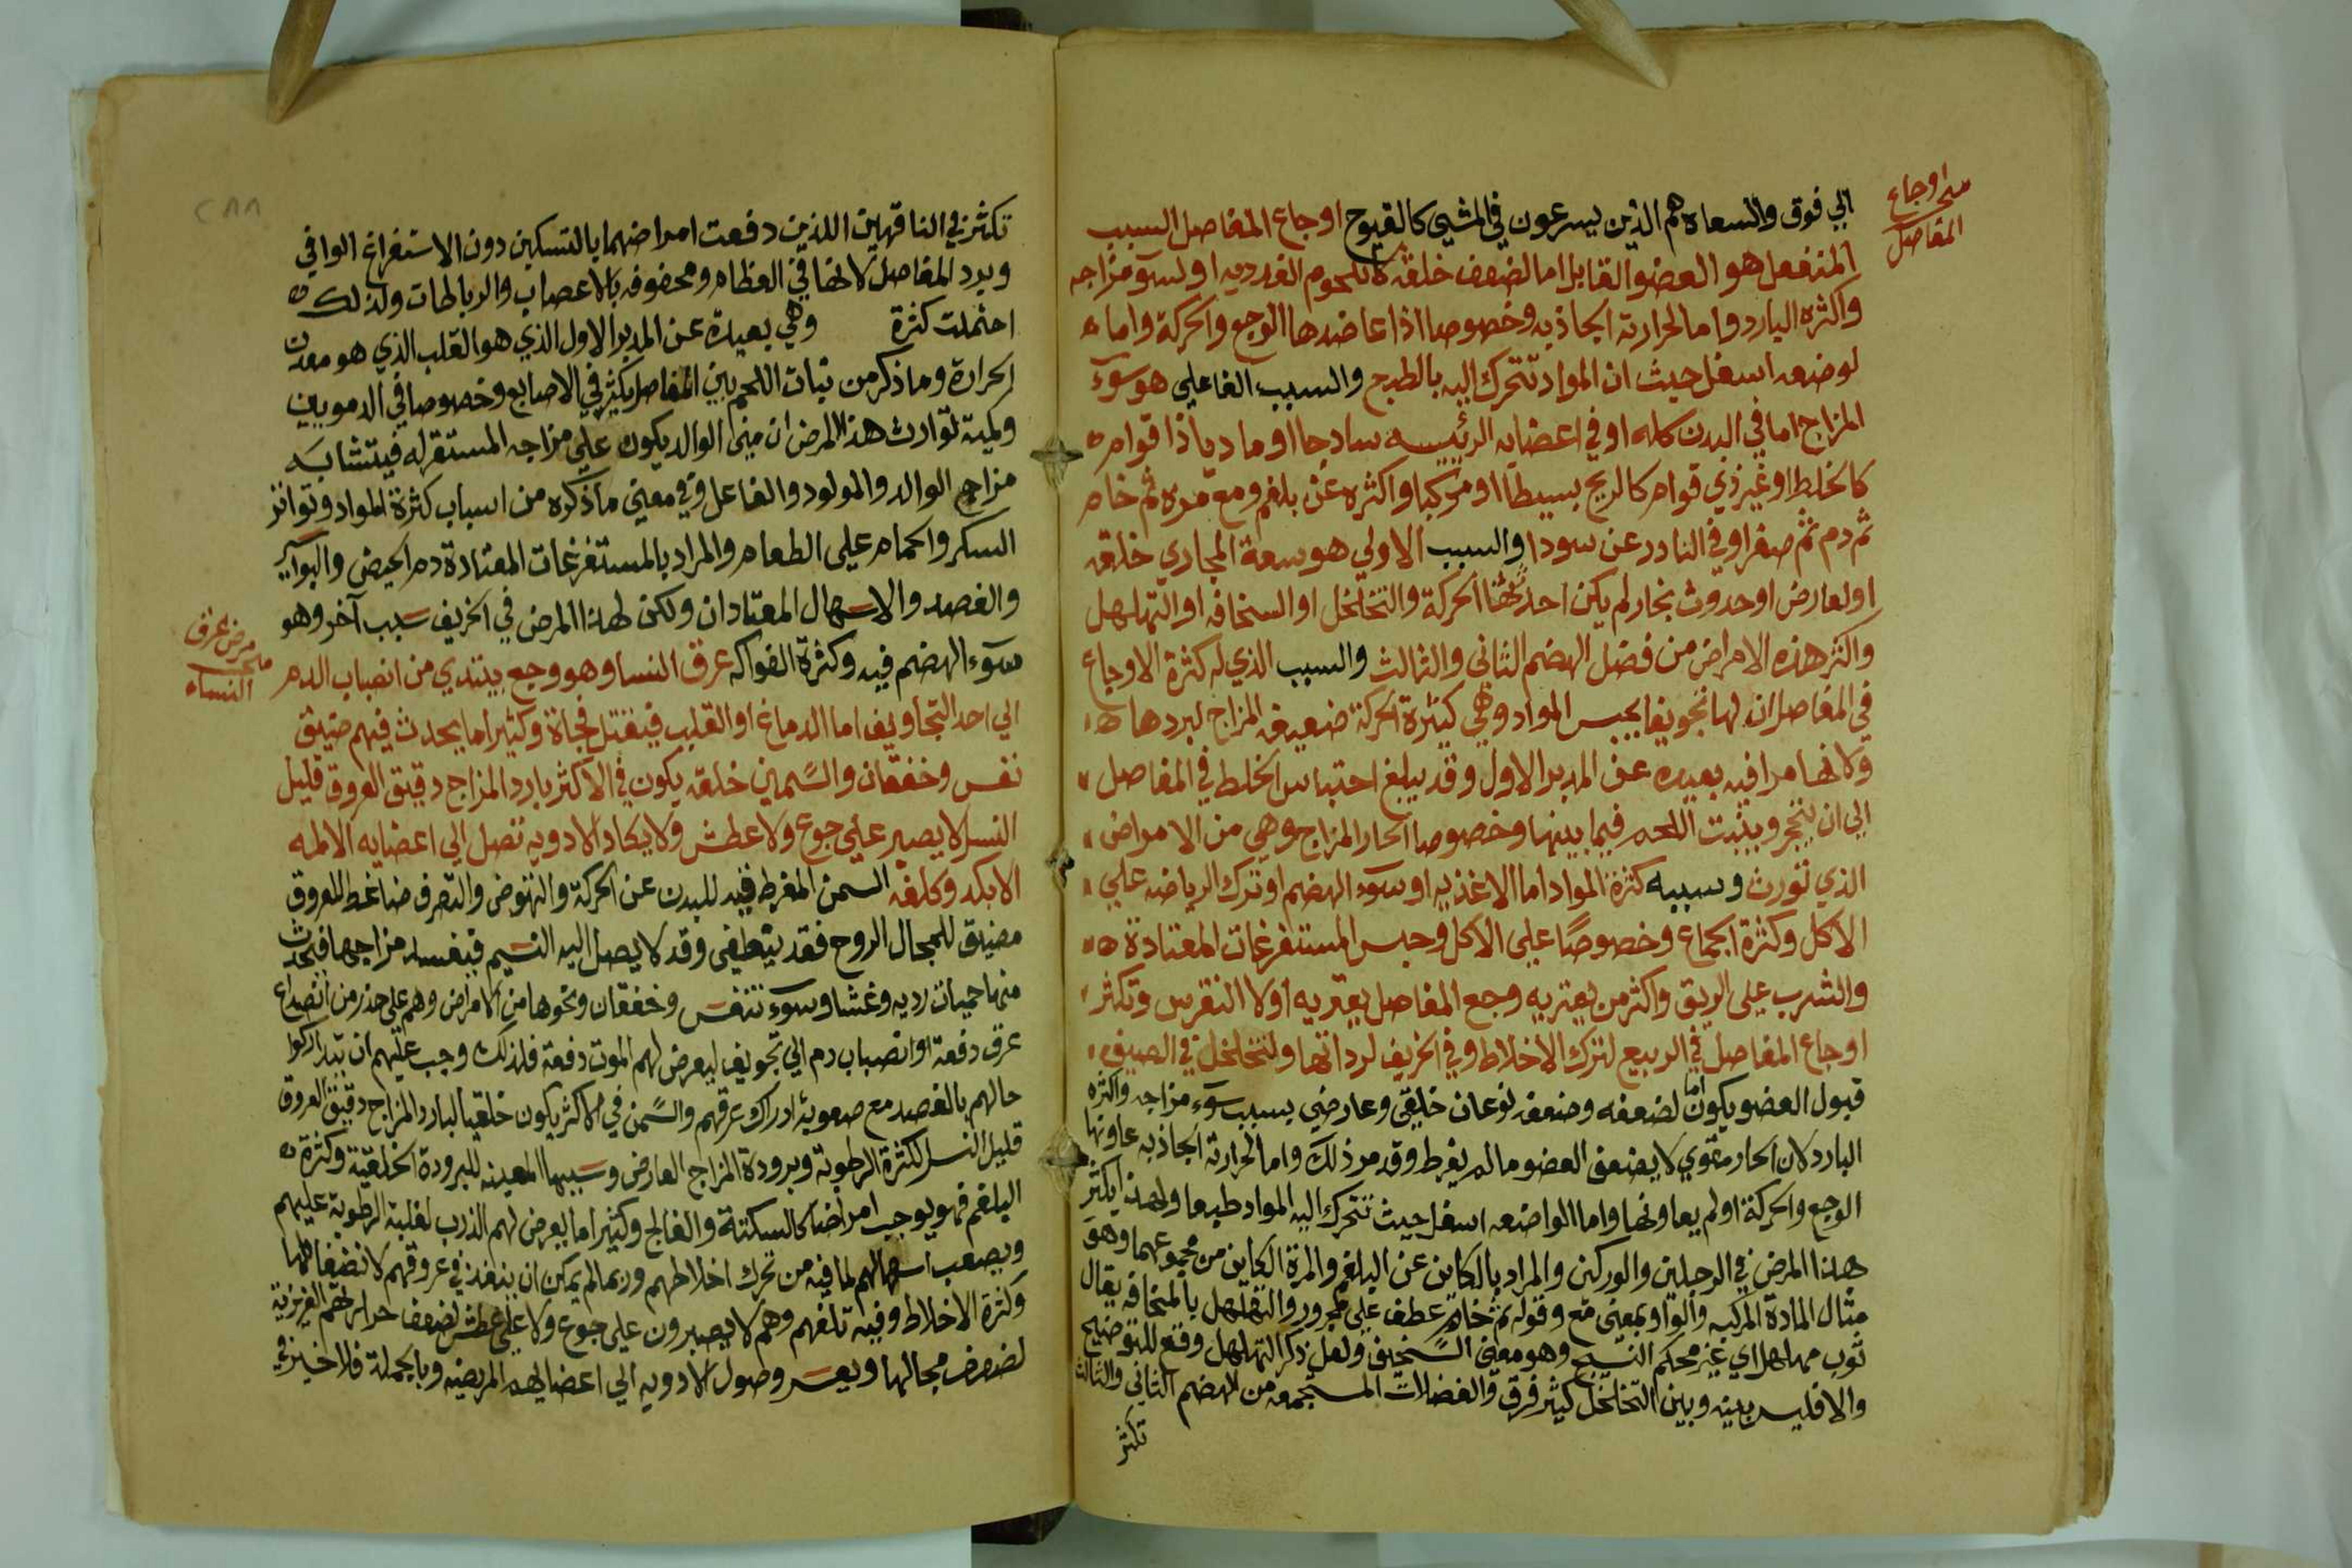 مبحث اوجاع
المفاصل
الي فوق والسعاه هم الذين يسرعون في المشي كالفيوج اوجاع المفاصل السبب
المنفعل هو العضو القابل اما لضعف خلقة كاللحوم الغدديه او لسوء مزاجه
واكثره البارد واما لحرارته الجاذبه وخصوصا اذا عاضدها الوجع والحركة واما
لوضعه اسفل حيث ان المواد تتحرك اليه بالطبع والسبب الفاعلي هو سوء
المزاج اما في البدن كله او في اعضايه الرئيسه ساذجا او ماديا ذا قوام
كالخلط او غير ذي قوام كالريح بسيطا او مركبا واكثره عن بلغم ومع مره ثم خام
ثم دم ثم صفرا وفي النادر عن سودا والسبب الاولي هو سعة المجاري خلقه
او لعارض او حدوث مجار لم يكن احدثتها الحركة والتخلخل او السخافه او التهلهل
واكثر هذه الامراض من فضل الهضم الثاني والثالث والسبب الذي له كثرة الاوجاع
في المفاصل ان لها تجويفا يحبس المواد وهي كثيرة الحركة ضعيفه المزاج لبردها
وكانها مرافيه بعيده عن المدبر الاول وقد يبلغ احتباس الخلط في المفاصل
الي ان يتحجر وينبت اللحم فيما بينها وخصوصا الحار المزاج وهي من الامراض
الذي تورث وسببه كثرة المواد اما الاغذيه او سوء الهضم او ترك الرياضه علي
الاكل وكثرة الجماع وخصوصا علي الاكل وحبس المستفرغات المعتادة
والشرب علي الريق واكثر من يعتريه وجع المفاصل يعتريه اولا النقرس وتكثر
اوجاع المفاصل في الربيع لتحرك الاخلاط وفي الخريف لرداتها ولتخلخل في الصيف
قبول العضو يكون اما لضعفه وضعفه نوعان خلقي وعارضي بسبب سوء مزاجه واكثره
البارد لان الحار مقوي لا يضعف العضو ما لم يفرط وقد مر ذلك واما لحرارته الجاذبه عاونها
الوجع والحركة او لم يعاونها واما الواضعه اسفل حيث تتحرك اليه المواد طبعا ولهذا يكثر
هذا المرض في الرجلين والوركين والمراد بالكاين عن البلغم والمرة الكاين من مجموعهما وهو
مثال المادة المركبه والواو بمعني مع وقوله ثم خام عطف علي مجرور والتهلهل يالسخافه يقال
ثوب مهلهل اي غير محكم النسج وهو معني السخيف ولعل ذكر التهلهل وقع للتوضيح
والا فليس بينه وبين التخلخل كثير فرق والفضلات المستجمعه من الهضم الثاني والثالث
تكثر
تكثر في الناقهين اللذين دفعت امراضهما بالتسكين دون الاستفراغ الوافي
وبرد المفاصل لانها في العظام ومحفوفه بالاعصاب والرباطات ولذلك
احتملت كثرة وهي بعيدة عن المدبر الاول الذي هو القلب الذي هو معدن
الحرارة وما ذكر من نبات اللحم بين المفاصل يكثر في الاصابع وخصوصا في الدمويين
ولمية توارث هذا المرض ان مني الوالد يكون علي مزاجه المستقر له فيتشابه
مزاج الوالد والمولود والفاعل وفي معني ما ذكره من اسباب كثرة المواد وتواتر
السكر والحمام علي الطعام والمراد بالمستفرغات المعتادة دم الحيض والبواسير
والفصد والاسهال المعتادان ولكن لهذا المرض في الخريف سبب آخر وهو
سوء الهضم فيه وكثرة الفواكه عرق النسا وهو وجع يبتدي من انصباب الدم
مبحث مرض عرق
النساء
الي احد التجاويف اما الدماغ او القلب فيقتل فجاة وكثيرا ما يحدث فيهم ضيق
نفس وخفقان والسمين خلقه يكون في الاكثر بارد المزاج دقيق العروق قليل
النسل لا يصبر علي جوع ولا عطش ولا يكاد الادويه تصل الي اعضايه الالمه
الا بكد وكلفه السمن المفرط قيد للبدن عن الحركة والنهوض والتصرف ضاغط للعروق
مضيق للمجال الروح فقد ينطفي وقد لا يصل اليه النسيم فيفسد مزاجها فيحدث
منها حميات رديه وغشا وسوء تنفس وخفقان ونحوها من الامراض وهم علي حذر من انصداع
عرق دفعة او انصباب دم الي تجويف ليعرض لهم الموت دفعة فلذلك وجب عليهم ان يتداركوا
حالهم بالفصد مع صعوبة ادراك عرقهم والسمن في الاكثر يكون خلقيا لبارد المزاج دقيق العروق
قليل النسل لكثرة الرطوبة وبرودة المزاج العارض وسببها المعينه للبرودة الخلقية وكثرة
البلغم فهو يوجب امراضا كالسكتة والفالج وكثيرا ما يعرض لهم الذرب لغلبة الرطوبة عليهم
ويصعب اسهالهم لما فيه من تحرك اخلاطهم وربما لم يمكن ان ينفذ في عروقهم لانضغاطها
وكثرة الاخلاط وفيه تلفهم وهم لا يصبرون علي جوع ولا علي عطش لضعف حرارتهم الغريزية
لضيق مجالها ويعسر وصول الادويه الي اعضايهم المريضه وبالجملة فلا خير في